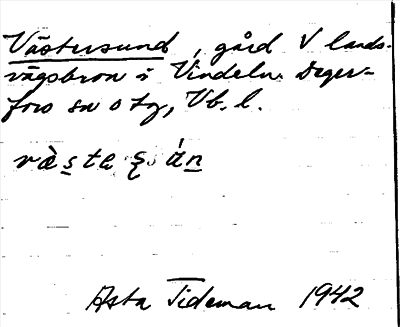 Västersund, gård V lands-
vägsbron i Vindeln. Deger-
fors sn o tg, Vb. l.
Asta Tideman 1942